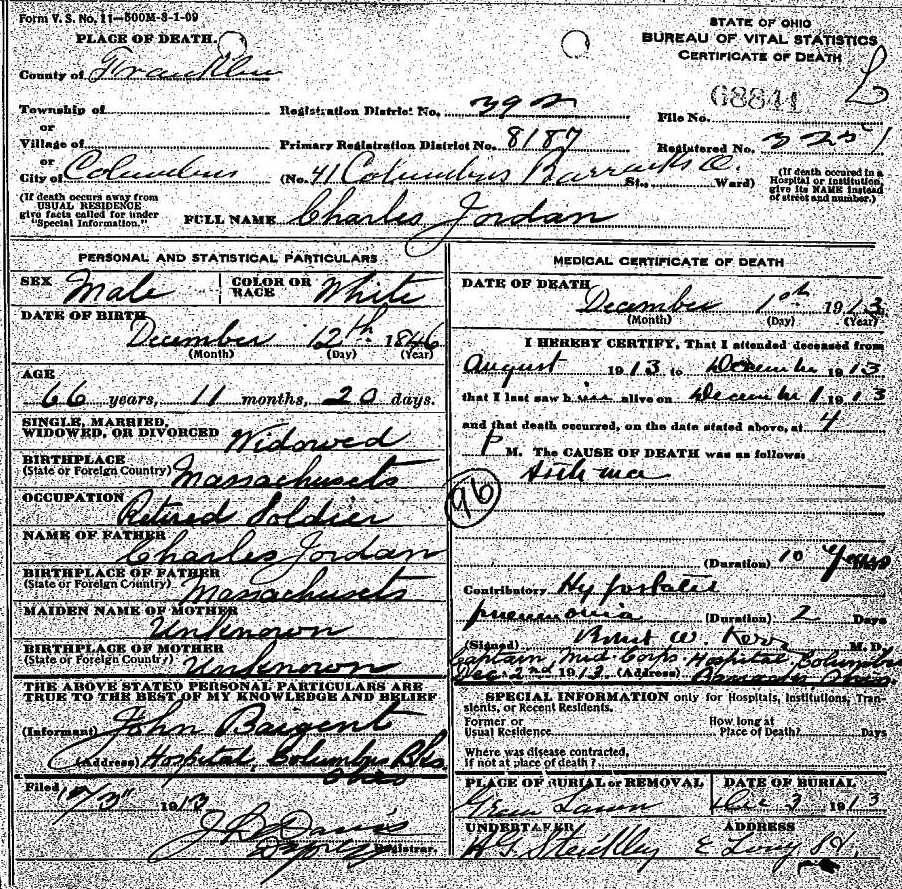 Form V. S. No. 11—500M-8-1-09
STATE OF OHIO
BUREAU OF VITAL STATISTICS
CERTIFICATE OF DEATH
PLACE OF DEATH.
County of Franklin
Township of
Registration District No. 392
File No. 68841
or
Village of
Primary Registration District No. 8187
Registered No. 3251
or
City of Columbus (No. 41 Columbus Barracks O. St., Ward)
(If death occured in a Hospital or Institution, give its NAME instead of street and number.)
(If death occurs away from USUAL RESIDENCE give facts called for under "Special Information.")
FULL NAME Charles Jordan
PERSONAL AND STATISTICAL PARTICULARS
SEX Male
COLOR OR RACE White
DATE OF BIRTH December 12th 1846
(Month) (Day) (Year)
AGE
66 years, 11 months, 20 days.
SINGLE, MARRIED, WIDOWED, OR DIVORCED Widowed
BIRTHPLACE
(State or Foreign Country) Massachusets
OCCUPATION Retired Soldier
NAME OF FATHER Charles Jordan
BIRTHPLACE OF FATHER
(State or Foreign Country) Massachusets
MAIDEN NAME OF MOTHER Unknown
BIRTHPLACE OF MOTHER
(State or Foreign Country) Unknown
THE ABOVE STATED PERSONAL PARTICULARS ARE
TRUE TO THE BEST OF MY KNOWLEDGE AND BELIEF
(Informant) John Bargent
(Address) Hospital, Columbus Bks.
Ohio
Filed 12/3 1913
J B Davis
Deputy Registrar.
MEDICAL CERTIFICATE OF DEATH
DATE OF DEATH December 1 1913
(Month) (Day) (Year)
I HEREBY CERTIFY, That I attended deceased from
August 1913 to December 1913
that I last saw him alive on December 1, 1913
and that death occurred, on the date stated above, at 4
P M. The CAUSE OF DEATH was as follows:
Asthma
96
(Duration) 10 Years
Contributory Hypostatic
pneumonia (Duration) 2 Days
(Signed) W. Kerr M. D.
Captain Med Corps. Hospital Columbus
Dec. 2nd 1913 (Address) Barracks Ohio.
SPECIAL INFORMATION only for Hospitals, Institutions, Transients, or Recent Residents.
Former or Usual Residence
How long at Place of Death? Days
Where was disease contracted, if not at place of death?
PLACE OF BURIAL or REMOVAL
Green Lawn
DATE OF BURIAL
Dec 3 1913
UNDERTAKER
ADDRESS
E Long St.